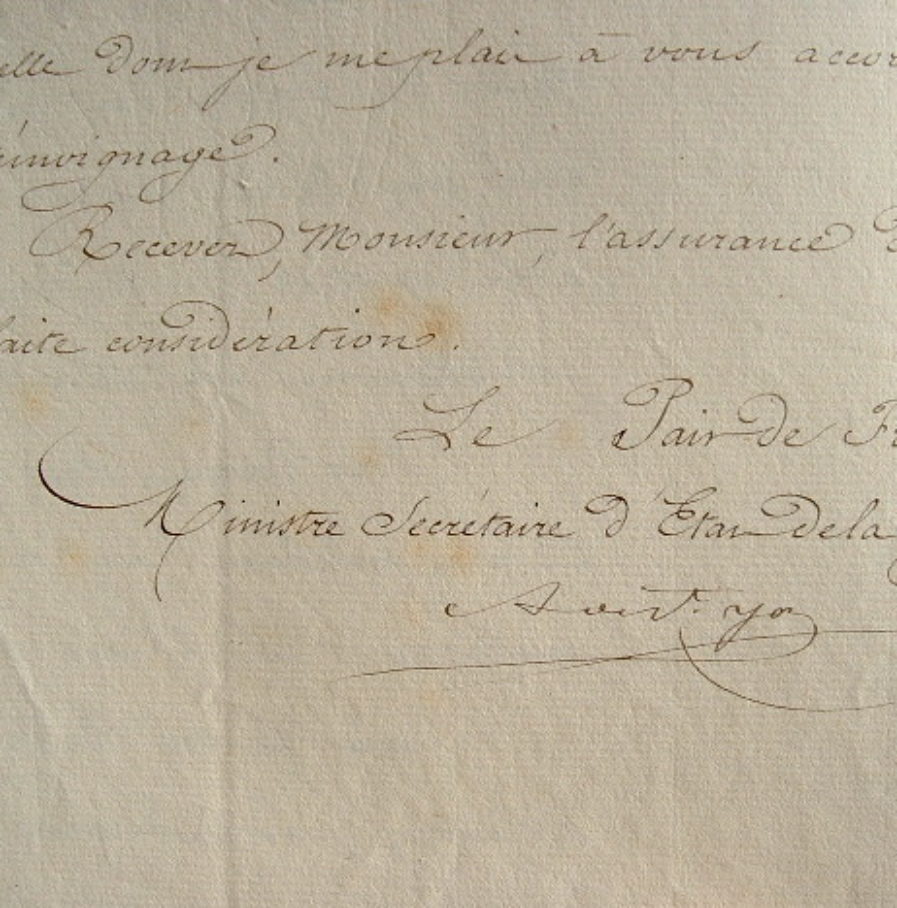 elle dont je me plais à vous accor
émoignage.
Recevez, Monsieur, l'assurance d
faite considération.
Le Pair de Fr
Ministre Secrétaire d'Etat de la